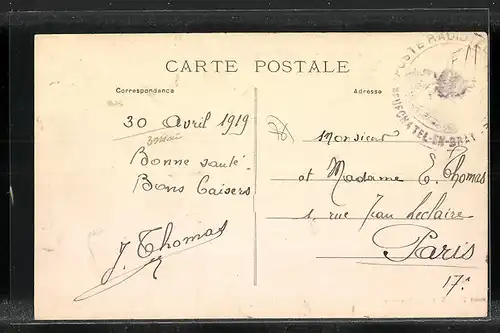 POSTE RADIO
NEUFCHATEL-EN-BRAY
FM
CARTE POSTALE
Correspondance
Adresse
30 Avril 1919
Bonne santé
Bons Baisers
J. Thomas
Monsieur
et Madame E. Thomas
1, rue Jean Leclaire
Paris
17.e